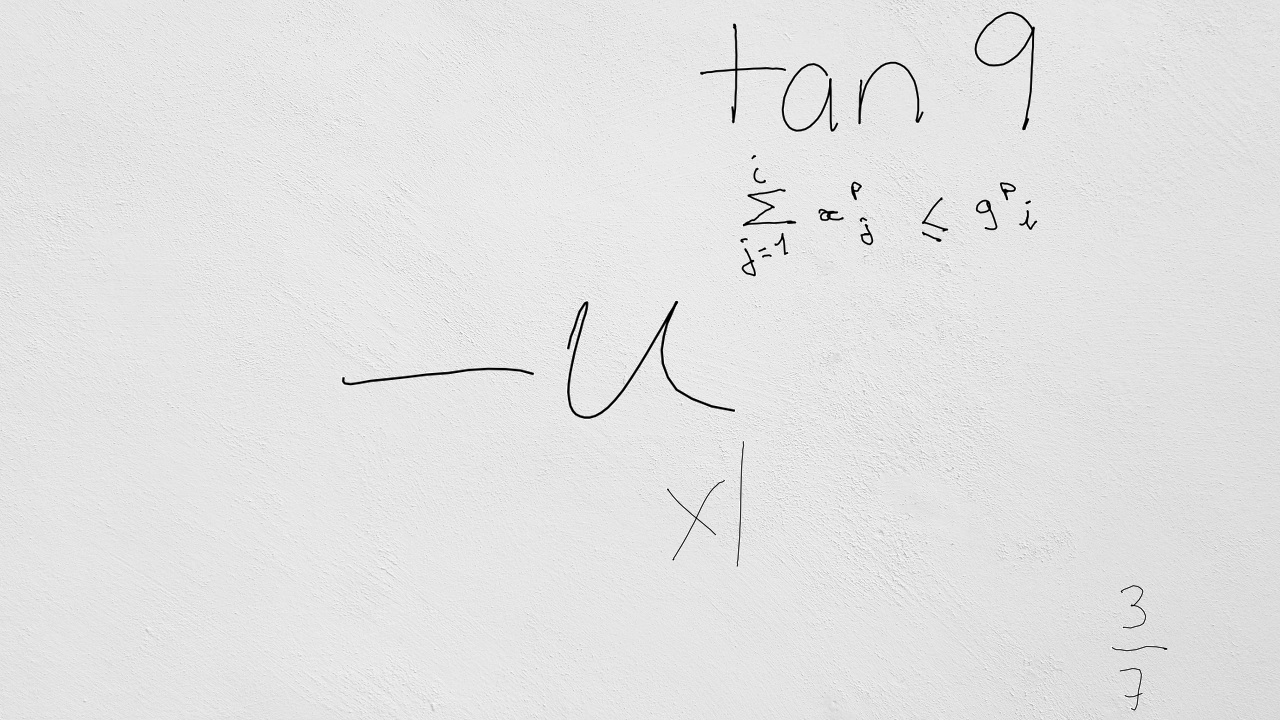 tan 9
\sum_{j=1}^{i} x_j^p \leq g^p i
-u
x|
\frac{3}{7}